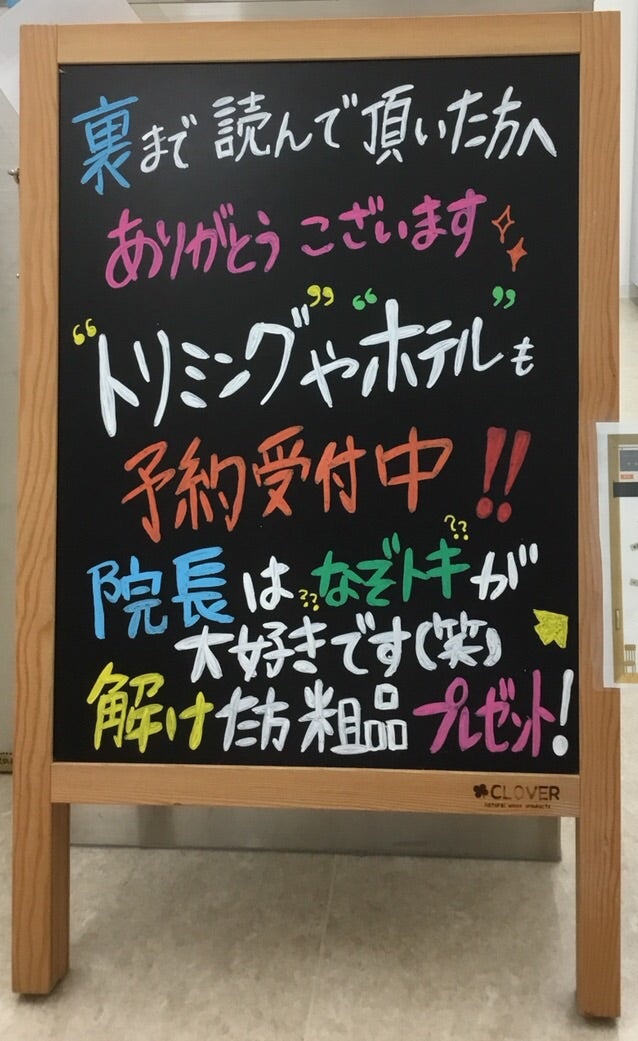 裏まで読んで頂いた方へ
ありがとうございます
“トリミング”や“ホテル”も
予約受付中!!
院長は??なぞトキ??が
大好きです(笑)
解けた方粗品プレゼント!
CLOVER
natural wood products